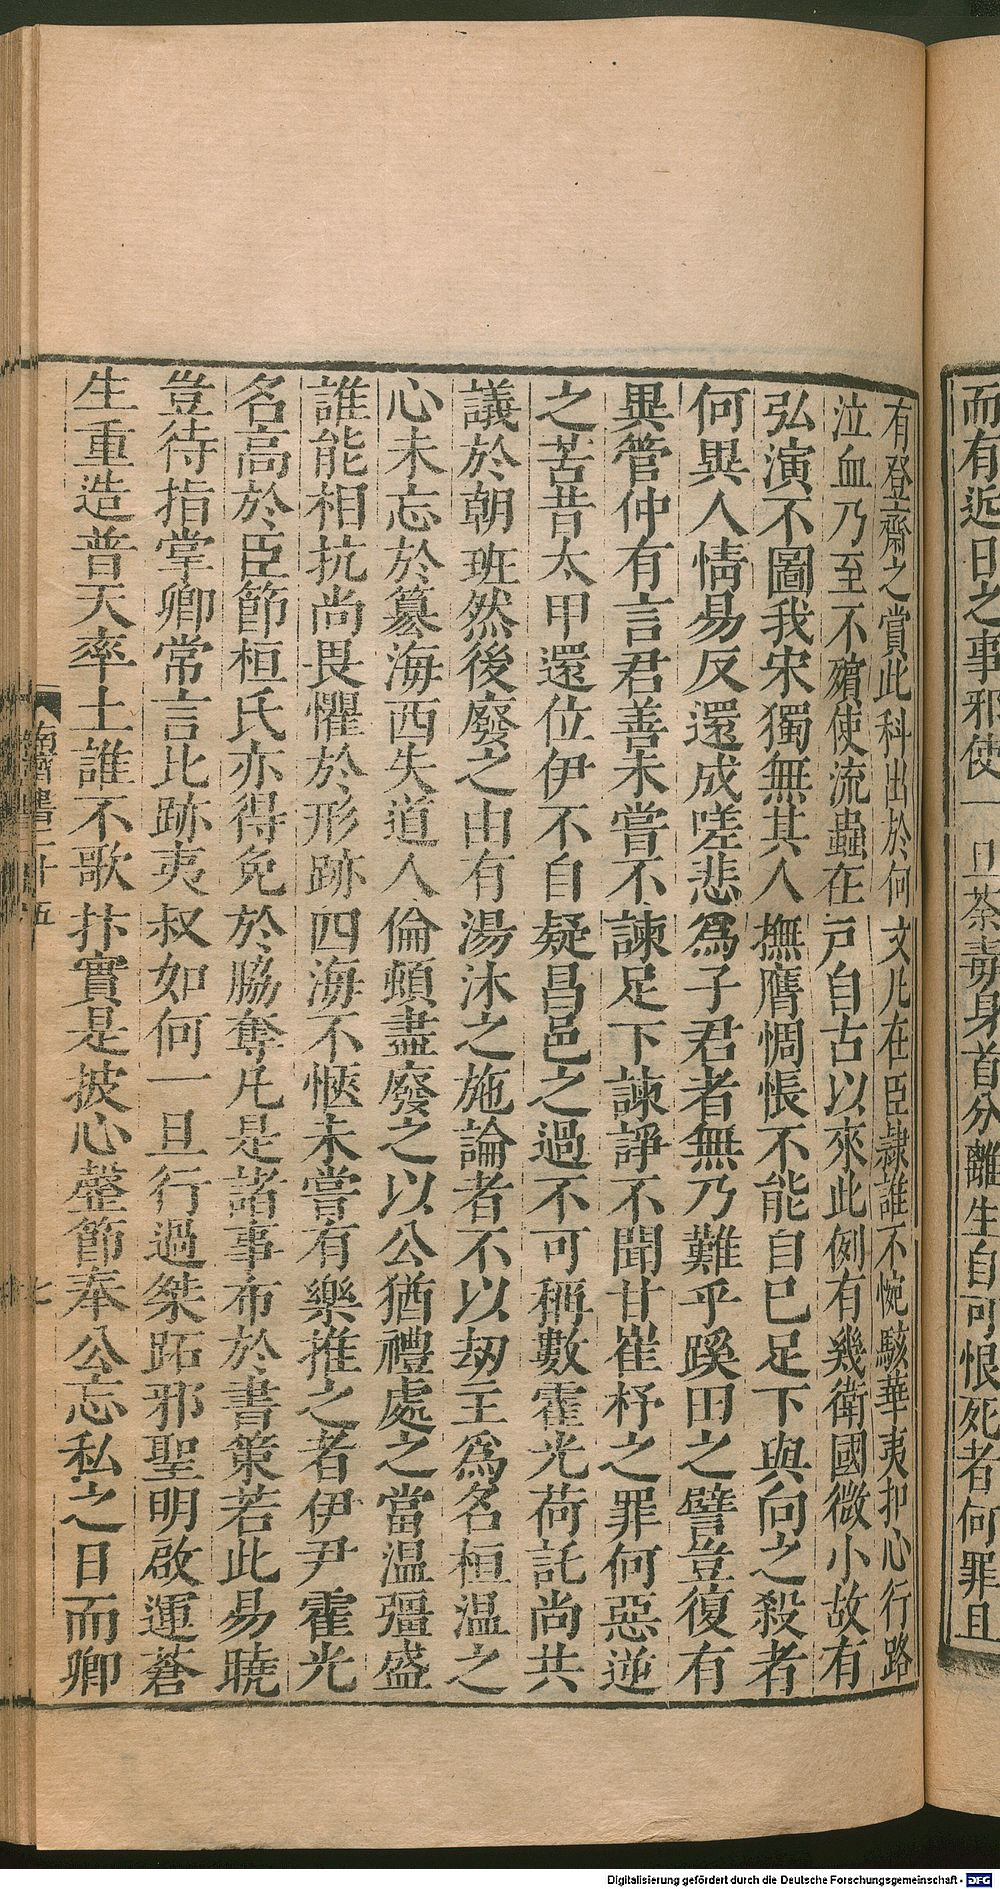 而有近日之事邪使一旦荼毒身首分離生自可恨死者何罪且
有登齋之賞此科出於何文凡在臣隸誰不惋駭華夷扣心行路
泣血乃至不殯使流蟲在戸自古以來此例有幾衛國微小故有
弘演不圖我宋獨無其人撫膺惆悵不能自已足下與向之殺者
何異人情易反還成嗟悲爲子君者無乃難乎蹊田之譬豈復有
異管仲有言君善未嘗不諫足下諫諍不聞甘崔杼之罪何惡逆
之苦昔太甲還位伊不自疑昌邑之過不可稱數霍光荷託尚共
議於朝班然後廢之由有湯沐之施論者不以刼主爲名桓温之
心未忘於篡海西失道人倫頓盡廢之以公猶禮處之當温彊盛
誰能相抗尚畏懼於形跡四海不愜未嘗有樂推之者伊尹霍光
名高於臣節桓氏亦得免於脇奪凡是諸事布於書策若此易曉
豈待指掌卿常言比跡夷叔如何一旦行過桀跖邪聖明啟運蒼
生重造普天率土誰不歌抃實是披心罄節奉公忘私之日而卿
南齊書二十五
七
Digitalisierung gefördert durch die Deutsche Forschungsgemeinschaft - DFG